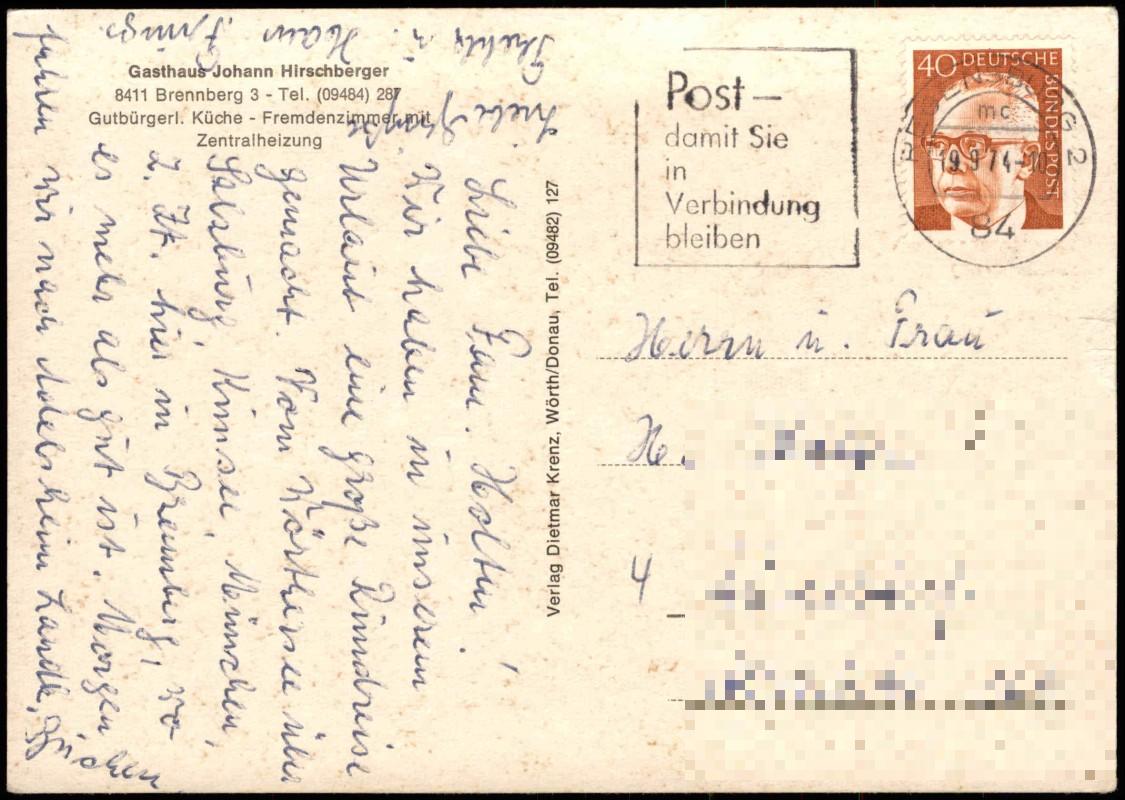 Gasthaus Johann Hirschberger
8411 Brennberg 3 - Tel. (09484) 287
Gutbürgerl. Küche - Fremdenzimmer mit
Zentralheizung
Liebe Fam. Holtur!
Wir haben in unserem
Urlaub eine große Rundreise
gemacht. Vom Wörthersee über
Salzburg, Kimsee, München,
z. Zt. hier in Brennberg, wo
es mehr als gut ist. Morgen
fahren wir nach Adelsheim Landk, Buchen
Liebe Grüße
u. Hans
Verlag Dietmar Krenz, Wörth/Donau, Tel. (09482) 127
Post —
damit Sie
in
Verbindung
bleiben
40 DEUTSCHE
BUNDESPOST
REGENSBURG 2
mc
19.9.74-10
84
Herrn u. Frau
He.
4